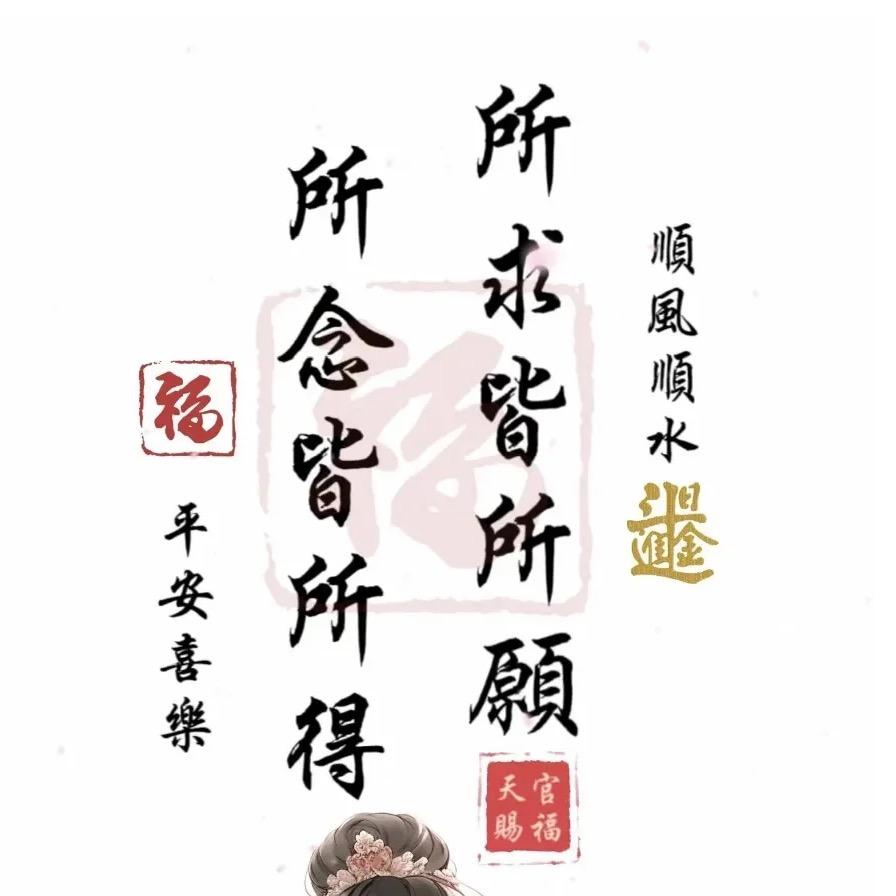 順風順水
日進斗金
所求皆所願
天官賜福
所念皆所得
福
平安喜樂
福